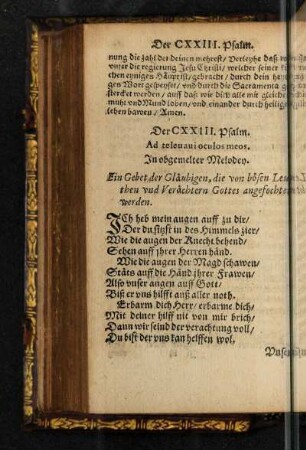 Der CXXIII. Psalm.
nung die zahl der deinen mehrest/ Verleyhe daß
vnter die regierung Jesu Christi/ welcher seiner
chen eynigen Häupt ist/ gebracht/ durch dein
gen Wort gespeyset/ vnd durch die Sacramenta
stercket werden/ auff daß wir dich alle mit gleichem
muht vnd Mund loben/ vnd einander durch heiligen
schen harren/ Amen.
Der CXXIII. Psalm.
Ad te leuaui oculos meos.
In obgemelter Melodey.
Ein Gebet der Gläubigen, die von bösen
then vnd Verächtern Gottes angefochten
werden.
ICh heb mein augen auff zu dir/
Der du sitzst in des Himmels zier/
Wie die augen der Knecht behend/
Sehen auff jhrer Herren händ.
Wie die augen der Magd schawen/
Stäts auff die Händ jhrer Frawen/
Also vnser augen auff Gott/
Biß er vns hilfft auß aller noth.
Erbarm dich Herr/ erbarme dich/
Mit deiner hilff nit von mir brich/
Dann wir seind der verachtung voll/
Du bist der vns kan helffen wol,